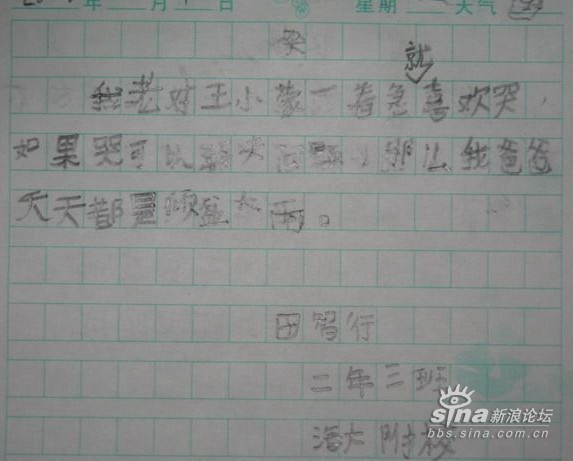 年 月 日 星期 天气
哭
就
我老对王小蒙一着急喜欢哭，
如果哭可以解决问题，那么我爸爸
天天都是倾盆大雨。
田智行
二年三班
大附校
sina 新浪论坛
bbs.sina.com.cn